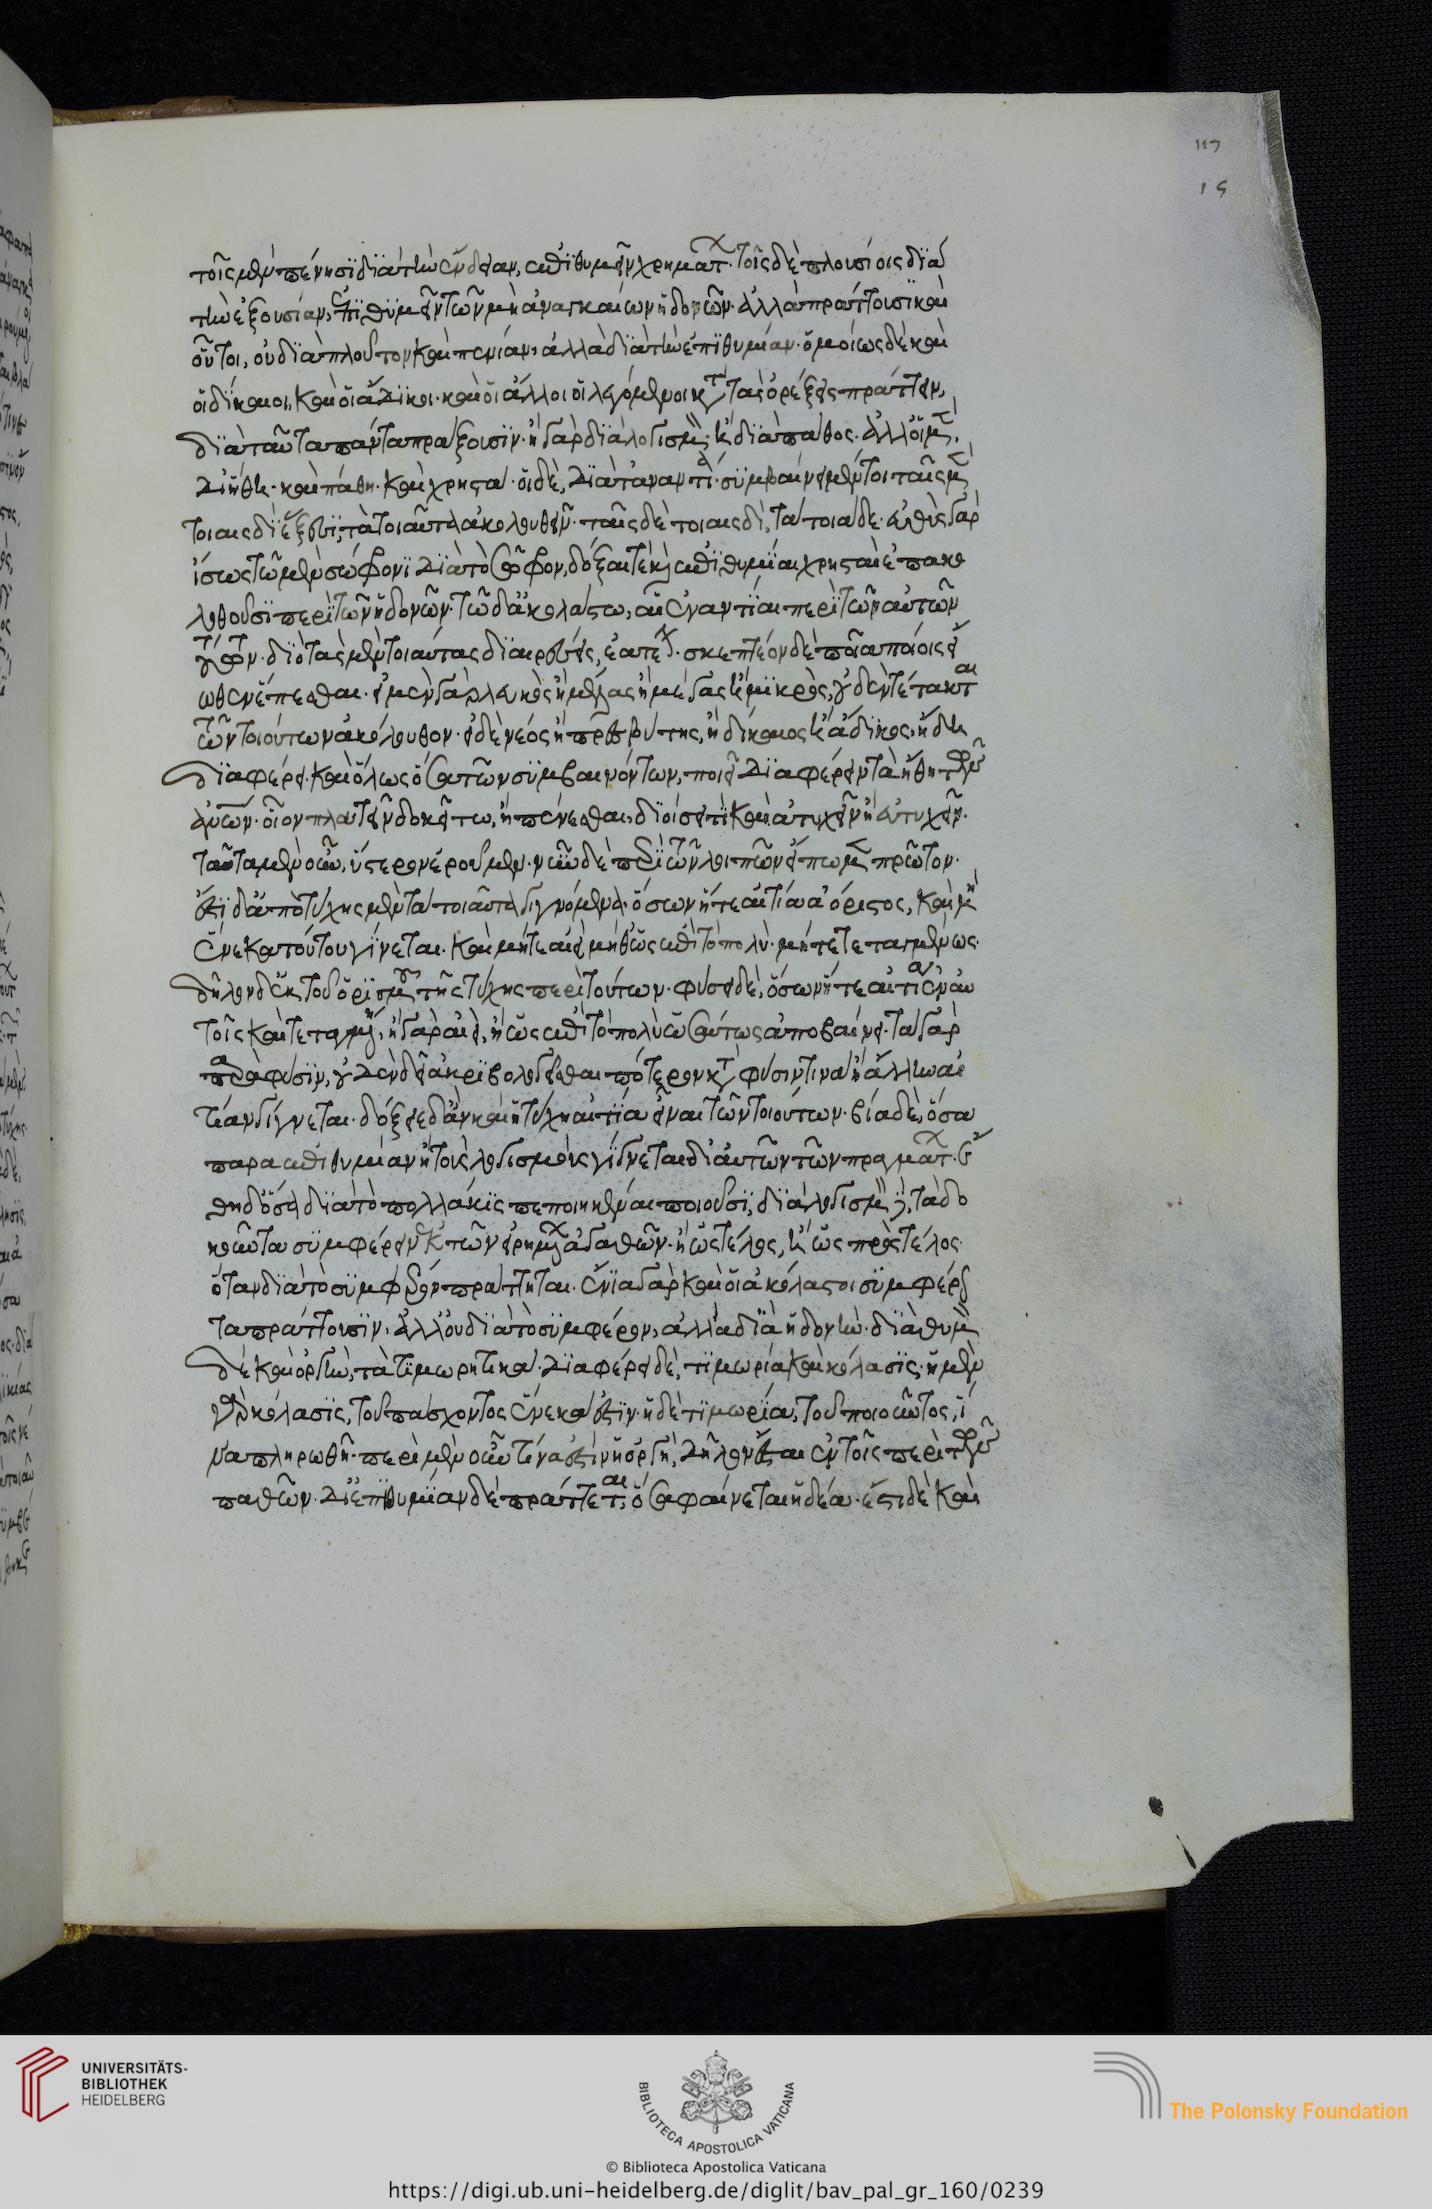 τοῖς μὲν πένησι διὰ τὴν ἔνδειαν, ἐπιθυμεῖν χρημάτ. τοῖς δὲ πλουσίοις διὰ
τὴν ἐξουσίαν, ἐπιθυμεῖν τῶν μὴ ἀναγκαίων ἡδονῶν. ἀλλὰ πράττουσι καὶ
οὗτοι, οὐ διὰ πλοῦτον καὶ πενίαν, ἀλλὰ διὰ τὴν ἐπιθυμίαν. ὁμοίως δὲ καὶ
οἱ δίκαιοι, καὶ οἱ ἄδικοι. καὶ οἱ ἄλλοι οἱ λεγόμενοι κτ τὰς ὀρέξεις πράττειν,
διὰ ταῦτα πάντα πράξουσιν. ἢ γὰρ διὰ λογισμὸν. ἢ διὰ πάθος. ἀλλ' οἱ μὲν,
δι' ἤθη. καὶ πάθη. καὶ χρηστά. οἱ δὲ, διὰ τἀναντία. συμβαίνει μέντοι ταῖς μὲν
τοιαισδὶ ἕξεσι, τὰ τοιαῦτα ἀκολουθεῖν. ταῖς δὲ τοιαισδὶ, τὰ τοιάδε. εὐθὺς γὰρ
ἴσως τῷ μὲν σώφρονι διὰ τὸ σῶφρον, δόξαι τὲ καὶ ἐπιθυμίαι χρησταὶ ἐπακο
λουθοῦσι περὶ τῶν ἡδονῶν. τῷ δ' ἀκολάστῳ, αἱ ἐναντίαι περὶ τῶν αὐτῶν
τούτων. διὸ τὰς μὲν τοιαύτας διαιρέσεις, ἐατέον. σκεπτέον δὲ ποῖα ποίοις εἴ
ωθεν ἕπεσθαι. εἰ μὲν γὰρ λευκὸς ἢ μέλας ἢ μέγας ἢ μικρὸς, οὐδὲν τέτακται
τῶν τοιούτων ἀκόλουθον. εἰ δὲ νέος ἢ πρεσβύτης, ἢ δίκαιος ἢ ἄδικος, ἤδη
διαφέρει. καὶ ὅλως ὅσα τῶν συμβαινόντων, ποιεῖ διαφέρειν τὰ ἤθη τῶν
ἀνῶν. οἷον πλουτεῖν δοκεῖ τω, ἢ πένεσθαι, διοίσει τι καὶ εὐτυχεῖν ἢ ἀτυχεῖν.
ταῦτα μὲν οὖν, ὕστερον ἐροῦμεν. νῦν δὲ περὶ τῶν λοιπῶν εἴπωμεν πρῶτον.
ἔστι δ' ἀπὸ τύχης μὲν τὰ τοιαῦτα γιγνόμενα. ὅσων ἥ τε αἰτία ἀόριστος, καὶ μὴ
ἕνεκα τούτου γίνεται. καὶ μήτε αἰεὶ μηθ' ὡς ἐπὶ τὸ πολὺ. μήτε τεταγμένως.
δῆλον δ' ἐκ τοῦ ὁρισμοῦ τῆς τύχης περὶ τούτων. φύσει δὲ, ὅσων ἥ τε αἰτία ἐν αὐ
τοῖς καὶ τεταγμένη, ἢ γὰρ αἰεὶ, ἢ ὡς ἐπὶ τὸ πολὺ ὡσαύτως ἀποβαίνει. τὰ γὰρ
παρὰ φύσιν, οὐδὲν δεῖ ἀκριβολογεῖσθαι πότερον κτ φύσιν τινὰ ἢ ἄλλην αἰ
τίαν γίγνεται. δόξειε δ' ἂν καὶ ἡ τύχη αἰτία εἶναι τῶν τοιούτων. βίᾳ δὲ, ὅσα
παρὰ ἐπιθυμίαν ἢ τοὺς λογισμοὺς γίγνεται δι' αὐτῶν τῶν πραγμάτ. ἔ
θει δ' ὅσα διὰ τὸ πολλάκις πεποιηκέναι ποιοῦσι, διὰ λογισμὸν δὲ, τὰ δο
κοῦντα συμφέρειν ἐκ τῶν εἰρημένων ἀγαθῶν. ἢ ὡς τέλος, ἢ ὡς πρὸς τέλος.
ὅταν διὰ τὸ συμφέρον πράττηται. ἔνια γὰρ καὶ οἱ ἀκόλαστοι συμφέρον
τα πράττουσιν. ἀλλ' οὐ διὰ τὸ συμφέρον, ἀλλὰ δι' ἡδονήν. διὰ θυμὸν
δὲ καὶ ὀργὴν, τὰ τιμωρητικά. διαφέρει δὲ, τιμωρία καὶ κόλασις. ἡ μὲν
γὰρ κόλασις, τοῦ πάσχοντος ἕνεκά ἐστιν. ἡ δὲ τιμωρία, τοῦ ποιοῦντος, ἵ
να πληρωθῇ. περὶ μὲν οὖν τίνα ἐστὶν ἡ ὀργὴ, δῆλον ἔσται ἐν τοῖς περὶ τῶν
παθῶν. δι' ἐπιθυμίαν δὲ πράττεται, ὅσα φαίνεται ἡδέα. ἔστι δὲ καὶ
117
UNIVERSITÄTS-
BIBLIOTHEK
HEIDELBERG
BIBLIOTECA APOSTOLICA VATICANA
The Polonsky Foundation
© Biblioteca Apostolica Vaticana
https://digi.ub.uni-heidelberg.de/diglit/bav_pal_gr_160/0239